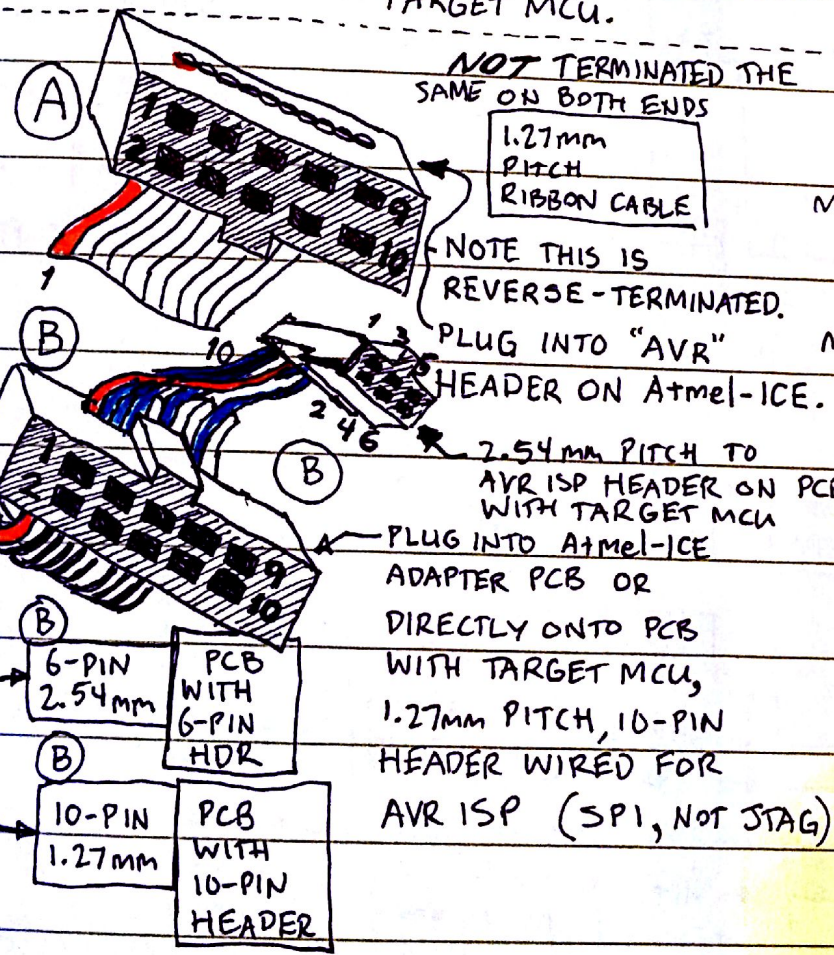 TARGET MCU.
A
NOT TERMINATED THE
SAME ON BOTH ENDS
1.27mm
PITCH
RIBBON CABLE
1
2
9
10
1
NOTE THIS IS
REVERSE-TERMINATED.
PLUG INTO "AVR"
HEADER ON Atmel-ICE.
B
10
1 3 5
2 4 6
B
2.54 mm PITCH TO
AVR ISP HEADER ON PCB
WITH TARGET MCU
1
2
9
10
PLUG INTO Atmel-ICE
ADAPTER PCB OR
DIRECTLY ONTO PCB
WITH TARGET MCU,
1.27mm PITCH, 10-PIN
HEADER WIRED FOR
AVR ISP (SPI, NOT JTAG)
B
6-PIN
2.54mm
PCB
WITH
6-PIN
HDR
B
10-PIN
1.27mm
PCB
WITH
10-PIN
HEADER